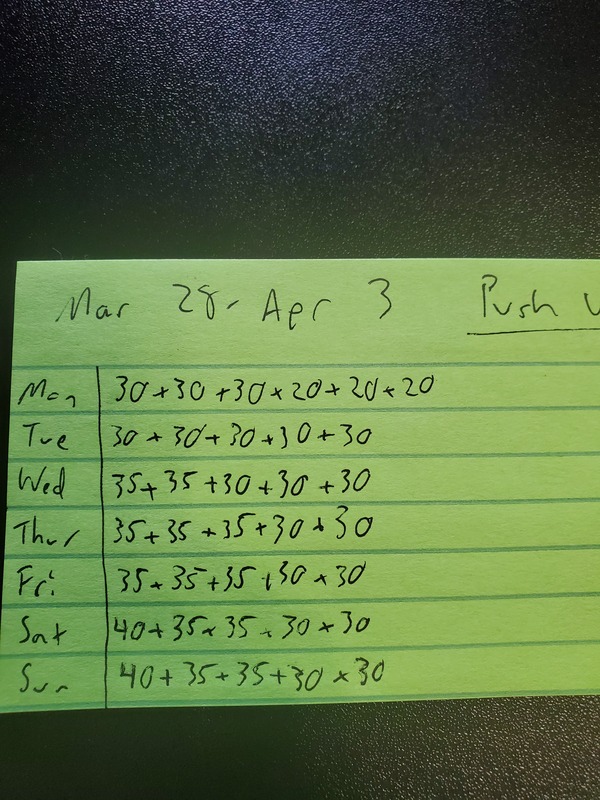 Mar 28 - Apr 3 Push U
Mon 30+30+30+20+20+20
Tue 30+30+30+30+30
Wed 35+35+30+30+30
Thur 35+35+35+30+30
Fri 35+35+35+30+30
Sat 40+35+35+30+30
Sun 40+35+35+30+30